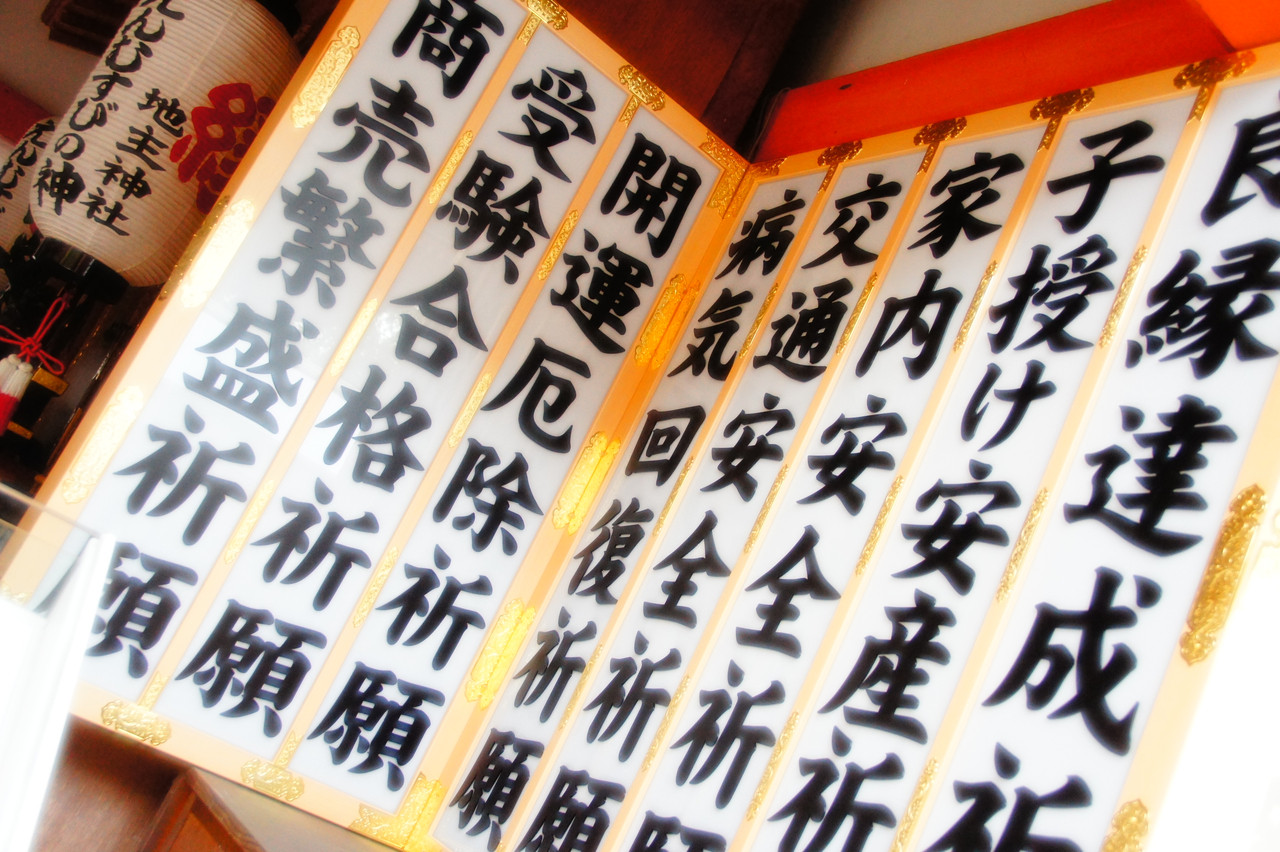 良縁達成祈
子授け安産祈
家内安全祈願
交通安全祈願
病気回復祈願
開運厄除祈願
受験合格祈願
商売繁盛祈願
地主神社
えんむすびの神